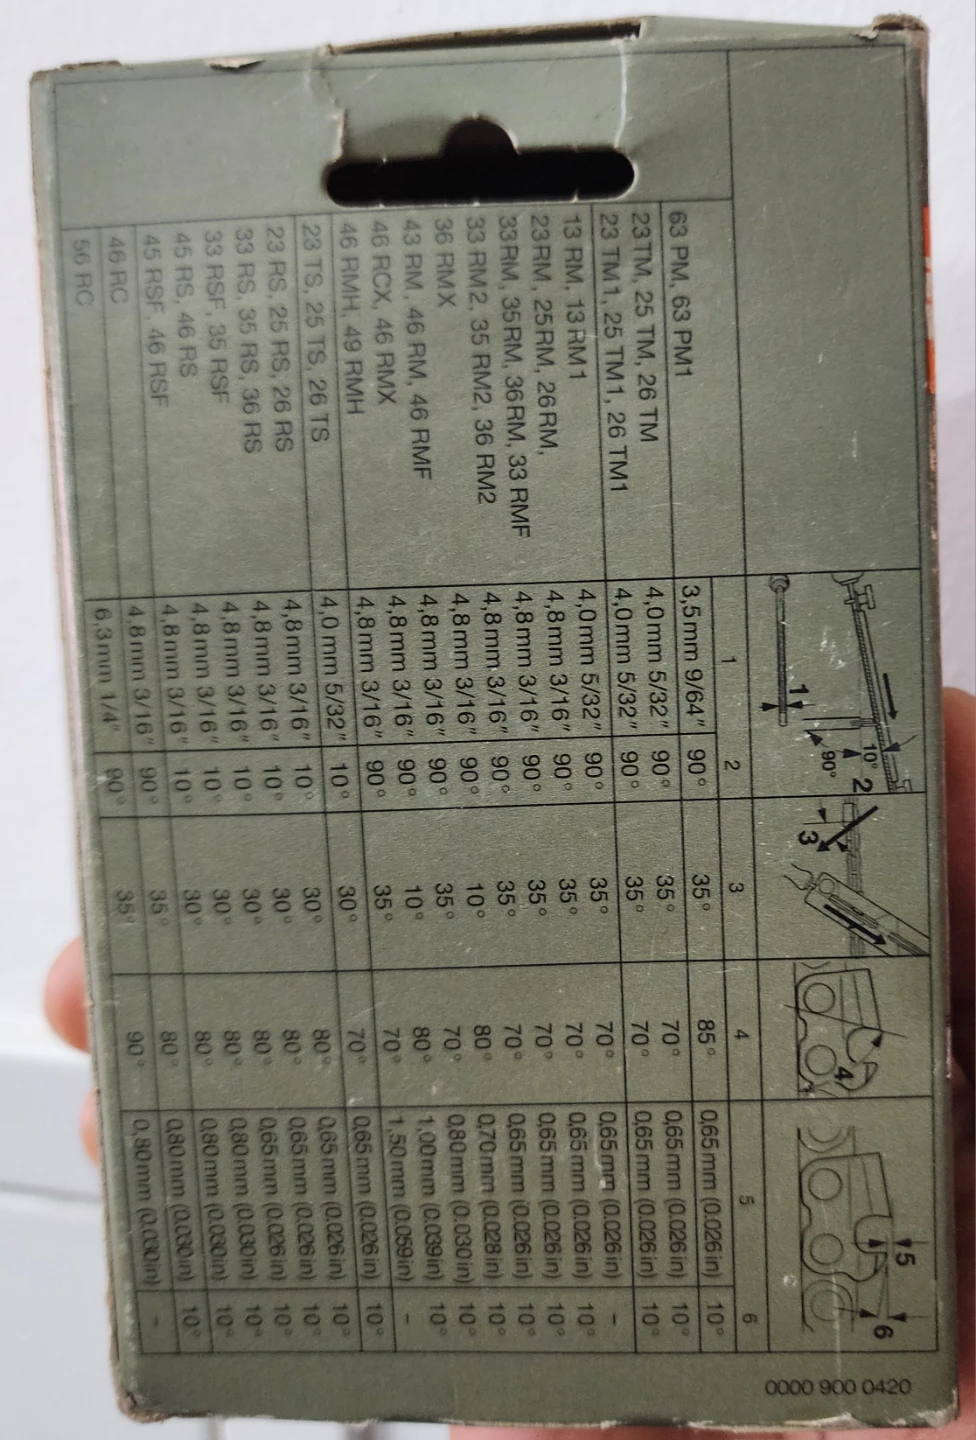 1 10° 90° 2 3 4 5 6
1 2 3 4 5 6
63 PM, 63 PM1 3,5 mm 9/64" 90° 35° 85° 0,65 mm (0.026 in) 10°
23 TM, 25 TM, 26 TM 4,0 mm 5/32" 90° 35° 70° 0,65 mm (0.026 in) 10°
23 TM1, 25 TM1, 26 TM1 4,0 mm 5/32" 90° 35° 70° 0,65 mm (0.026 in) 10°
13 RM, 13 RM1 4,0 mm 5/32" 90° 35° 70° 0,65 mm (0.026 in) –
23 RM, 25 RM, 26 RM, 4,8 mm 3/16" 90° 35° 70° 0,65 mm (0.026 in) 10°
33 RM, 35 RM, 36 RM, 33 RMF 4,8 mm 3/16" 90° 35° 70° 0,65 mm (0.026 in) 10°
33 RM2, 35 RM2, 36 RM2 4,8 mm 3/16" 90° 35° 70° 0,65 mm (0.026 in) 10°
36 RMX 4,8 mm 3/16" 90° 10° 80° 0,70 mm (0.028 in) 10°
43 RM, 46 RM, 46 RMF 4,8 mm 3/16" 90° 35° 70° 0,80 mm (0.030 in) 10°
46 RCX, 46 RMX 4,8 mm 3/16" 90° 10° 80° 1,00 mm (0.039 in) 10°
46 RMH, 49 RMH 4,8 mm 3/16" 90° 35° 70° 1,50 mm (0.059 in) –
23 TS, 25 TS, 26 TS 4,0 mm 5/32" 10° 30° 70° 0,65 mm (0.026 in) 10°
23 RS, 25 RS, 26 RS 4,8 mm 3/16" 10° 30° 80° 0,65 mm (0.026 in) 10°
33 RS, 35 RS, 36 RS 4,8 mm 3/16" 10° 30° 80° 0,65 mm (0.026 in) 10°
33 RSF, 35 RSF 4,8 mm 3/16" 10° 30° 80° 0,65 mm (0.026 in) 10°
45 RS, 46 RS 4,8 mm 3/16" 10° 30° 80° 0,80 mm (0.030 in) 10°
45 RSF, 46 RSF 4,8 mm 3/16" 10° 30° 80° 0,80 mm (0.030 in) 10°
46 RC 4,8 mm 3/16" 90° 35° 80° 0,80 mm (0.030 in) 10°
56 RC 6,3 mm 1/4" 90° 35° 90° 0,80 mm (0.030 in) –
0000 900 0420